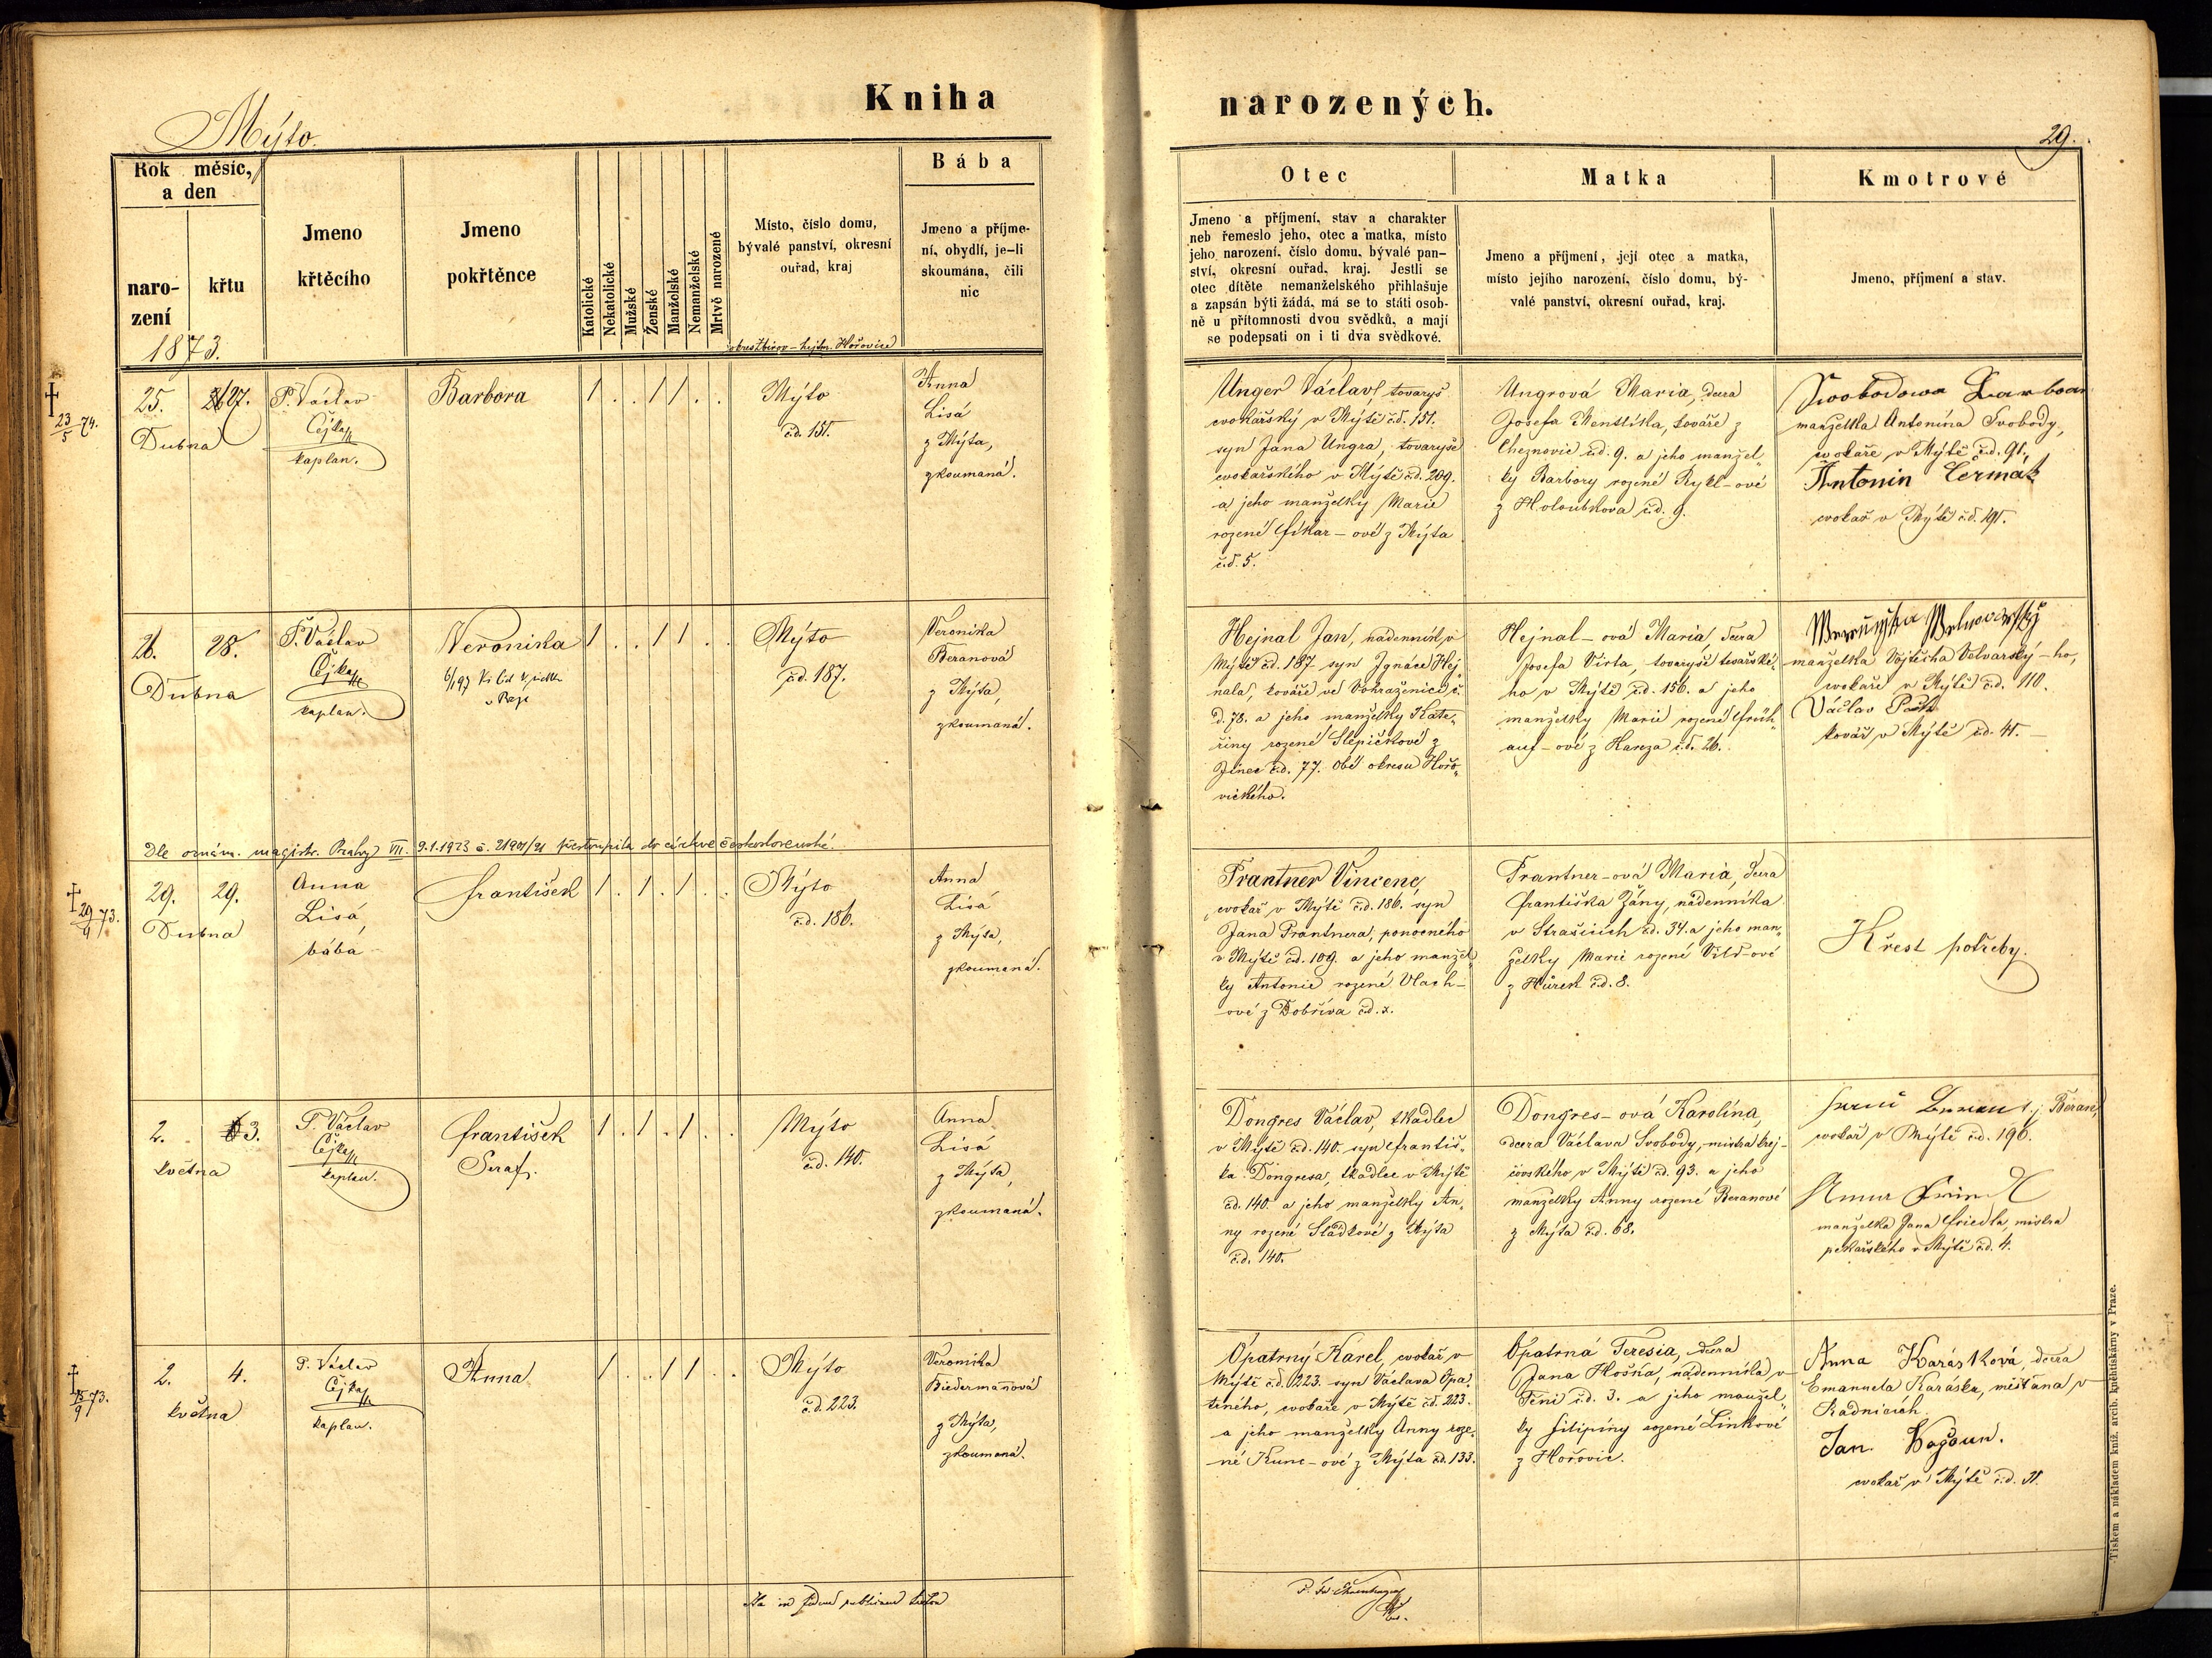 Kniha
narozených.
Mýto.
29.
Rok měsíc,
a den
naro-
zení
křtu
1873.
Jmeno
křtěcího
Jmeno
pokřtěnce
Katolické
Nekatolické
Mužské
Ženské
Manželské
Nemanželské
Mrtvě narozené
Místo, číslo domu,
bývalé panství, okresní
ouřad, kraj
okres Zbirov – hejtm. Hořovice
Bába
Jmeno a příjme-
ní, obydlí, je-li
skoumána, čili
nic
Otec
Jmeno a příjmení, stav a charakter
neb řemeslo jeho, otec a matka, místo
jeho narození, číslo domu, bývalé pan-
ství, okresní ouřad, kraj. Jestli se
otec dítěte nemanželského přihlašuje
a zapsán býti žádá, má se to státi osob-
ně u přítomnosti dvou svědků, a mají
se podepsati on i ti dva svědkové.
Matka
Jmeno a příjmení, její otec a matka,
místo jejího narození, číslo domu, bý-
valé panství, okresní ouřad, kraj.
Kmotrové
Jmeno, příjmení a stav.
† 23/5 74.
25.
Dubna
27.
P. Václav
Čejka
kaplan.
Barbora
1 . . 1 1 . .
Mýto
č.d. 151.
Anna
Lisá
z Mýta,
zkoumaná.
Unger Václav, tovaryš
cvokářský v Mýtě č.d. 151.
syn Jana Ungra, tovaryše
cvokařského v Mýtě č.d. 209.
a jeho manželky Marie
rozené Fikar-ové z Mýta
č.d. 5.
Ungrová Maria, dcera
Josefa Mentlíka, kováře z
Cheznovic č.d. 9. a jeho manžel„
ky Barbory rozené Rykl-ové
z Holoubkova č.d. 9.
Swobodowa Barbora
manželka Antonína Svobody,
cvokaře v Mýtě č.d. 91.
Antonin Čermak
cvokař v Mýtě č.d. 191.
26.
Dubna
28.
P. Václav
Čejka
kaplan.
Veronika
1 . . 1 1 . .
Mýto
č.d. 187.
Veronika
Beranová
z Mýta,
zkoumaná.
Hejnal Jan, nádenník v
Mýtě č.d. 187 syn Ignáce Hej„
nala, kováře ve Vohrazenici č.
d. 78. a jeho manželky Kate„
řiny rozené Slepičkové z
Jinec č.d. 77. obé okresu Hořo„
vického.
Hejnal-ová Maria, dcera
Josefa Virta, tovaryše kovářské„
ho v Mýtě č.d. 156. a jeho
manželky Marie rozené Früh„
auf-ové z Kareza č.d. 26.
manželka Vojtěcha Velvarský-ho,
cvokaře v Mýtě č.d. 110.
Václav
kovář v Mýtě č.d. 41.
Dle oznám. magistr. Prahy VII. 9.1.1923 č. 21901/21 přestoupila do církve československé.
† 29/4 73.
29.
Dubna
29.
Anna
Lisá,
bába
František
1 . 1 . 1 . .
Mýto
č.d. 186.
Anna
Lisá
z Mýta,
zkoumaná.
Prantner Vincenc,
cvokař v Mýtě č.d. 186. syn
Jana Prantnera, ponocného
v Mýtě č.d. 109. a jeho manžel„
ky Antonie rozené Vlach-
ové z Dobřiva č.d. x.
Prantner-ová Maria, dcera
Františka Zány, nádenníka
v Strašicích č.d. 34. a jeho man„
želky Marie rozené Vild-ové
z Hůrek č.d. 8.
Křest potřeby.
2.
května
3.
P. Václav
Čejka
kaplan.
František
Seraf.
1 . 1 . 1 . .
Mýto
č.d. 140.
Anna
Lisá
z Mýta,
zkoumaná.
Dongres Václav, tkadlec
v Mýtě č.d. 140. syn Františ„
ka Dongresa, tkadlce v Mýtě
č.d. 140. a jeho manželky An„
ny rozené Sládkové z Mýta
č.d. 140.
Dongres-ová Karolina,
dcera Václava Svobody, mistra krej-
čovského v Mýtě č.d. 93. a jeho
manželky Anny rozené Beranové
z Mýta č.d. 68.
t. j. Beran,
cvokář v Mýtě č.d. 196.
manželka Jana Friedla, mistra
pekařského v Mýtě č.d. 4.
† 15/9 73.
2.
května
4.
P. Václav
Čejka
kaplan.
Anna
1 . . 1 1 . .
Mýto
č.d. 223.
Veronika
Biedermanová
z Mýta,
zkoumaná.
Opatrný Karel, cvokař v
Mýtě č.d. 223. syn Václava Opa„
trného, cvokaře v Mýtě č.d. 223.
a jeho manželky Anny roze„
né Kunc-ové z Mýta č.d. 133.
Opatrná Teresia, dcera
Jana Hošna, nádenníka v
Téni č.d. 3. a jeho manžel„
ky Filipiny rozené Linkové
z Hořovic.
Anna Karásková, dcera
Emanuela Karáska, měšťana v
Radnicích.
Jan Kaŝoun.
cvokař v Mýtě č.d. 31.
Tiskem a nákladem kníž. arcib. knihtiskárny v Praze.